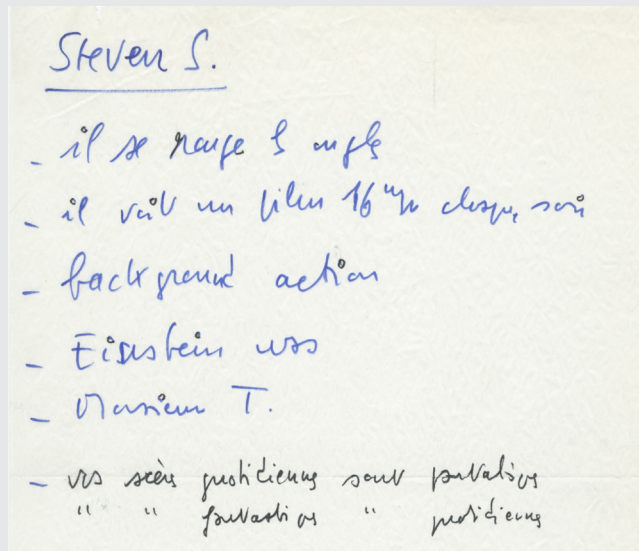 Steven S.
- il se ronge les ongles
- il voit un film 16 mm chaque soir
- background action
- Eisenstein
- Monsieur T.
- vos scènes quotidiennes sont fantastiques
" " fantastiques " quotidiennes